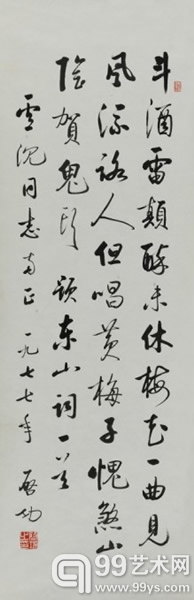 斗酒雷颠醉未休梅花一曲见
风流路人但唱黄梅子愧煞山
阴贺鬼头 题东山词一首
云沈同志两正 一九七七年 启功
99艺术网
www.99ys.com